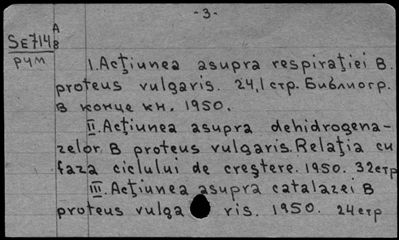 -3-
SE714 A/8
рум
I. Acţiunea asupra respiraţiei B.
proteus vulgaris. 24,1 стр. Библиогр.
в конце кн. 1950.
II. Acţiunea asupra dehidrogena-
zelor B proteus vulgaris. Relaţia cu
faza ciclului de creştere. 1950. 32стр
III. Acţiunea asupra catalazei B
proteus vulga ris. 1950. 24стр